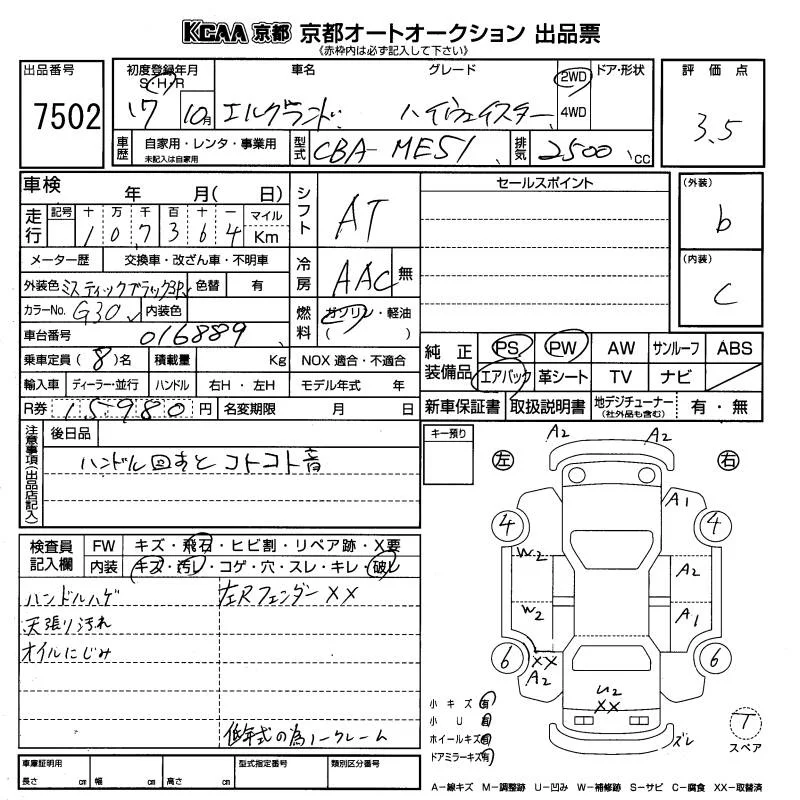 KCAA 京都 京都オートオークション 出品票
《赤枠内は必ず記入して下さい》
出品番号
7502
初度登録年月
S・H・R
17 10月
車名
エルグランド
グレード
ハイウェイスター
2WD
4WD
ドア・形状
評価点
3.5
車歴
自家用・レンタ・事業用
未記入は自家用
型式
CBA-ME51
排気
2500 cc
車検
年 月( 日)
走行
記号 十 万 千 百 十 一 マイル
1 0 7 3 6 4 Km
メーター歴 交換車・改ざん車・不明車
外装色 ミスティックブラック3P 色替 有
カラーNo. G30 内装色
車台番号 016889
乗車定員 (8)名 積載量 Kg
輸入車 ディーラー・並行 ハンドル 右H・左H
R券 15980 円 名変期限 月 日
シフト AT
冷房 AAC 無
燃料 ガソリン・軽油
( )
NOX 適合・不適合
モデル年式 年
セールスポイント
(外装)
b
(内装)
C
純正装備品
PS PW AW サンルーフ ABS
エアバック 革シート TV ナビ
新車保証書 取扱説明書 地デジチューナー
(社外品も含む)
有・無
注意事項(出品店記入)
後日品
ハンドル回すとコトコト音
キー預り
検査員記入欄
FW キズ・飛石・ヒビ割・リペア跡・X要
内装 キズ・汚レ・コゲ・穴・スレ・キレ・破レ
ハンドルハゲ
左Rフェンダー XX
天張り汚れ
オイルにじみ
低年式の為ノークレーム
車庫証明用
長さ cm 幅 cm 高さ cm
型式指定番号
類別区分番号
A2 A2
左 右
A1
4 4
W2
A2
W2
A1
6 6
XX
A2
U2
XX
ズレ
小キズ 有
小U 有
ホイールキズ 有
ドアミラーキズ 有
T
スペア
A―線キズ M―調整跡 U―凹み W―補修跡 S―サビ C―腐食 XX―取替済